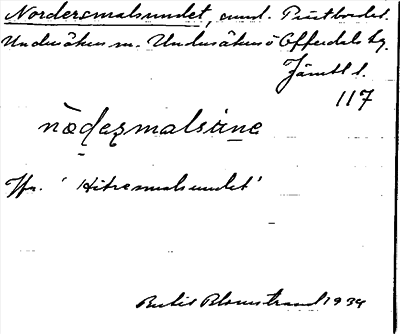 Nordersmalsundet, sund. Prästbordet.
Undersåkers sn. Undersåkers o Offerdals tg.
Jämtl l.
117
nɷ̀ḍeʂmalsɯ́ne
Jfr. 'Hitresmalsundet'
Bertil Blomstrand 1934